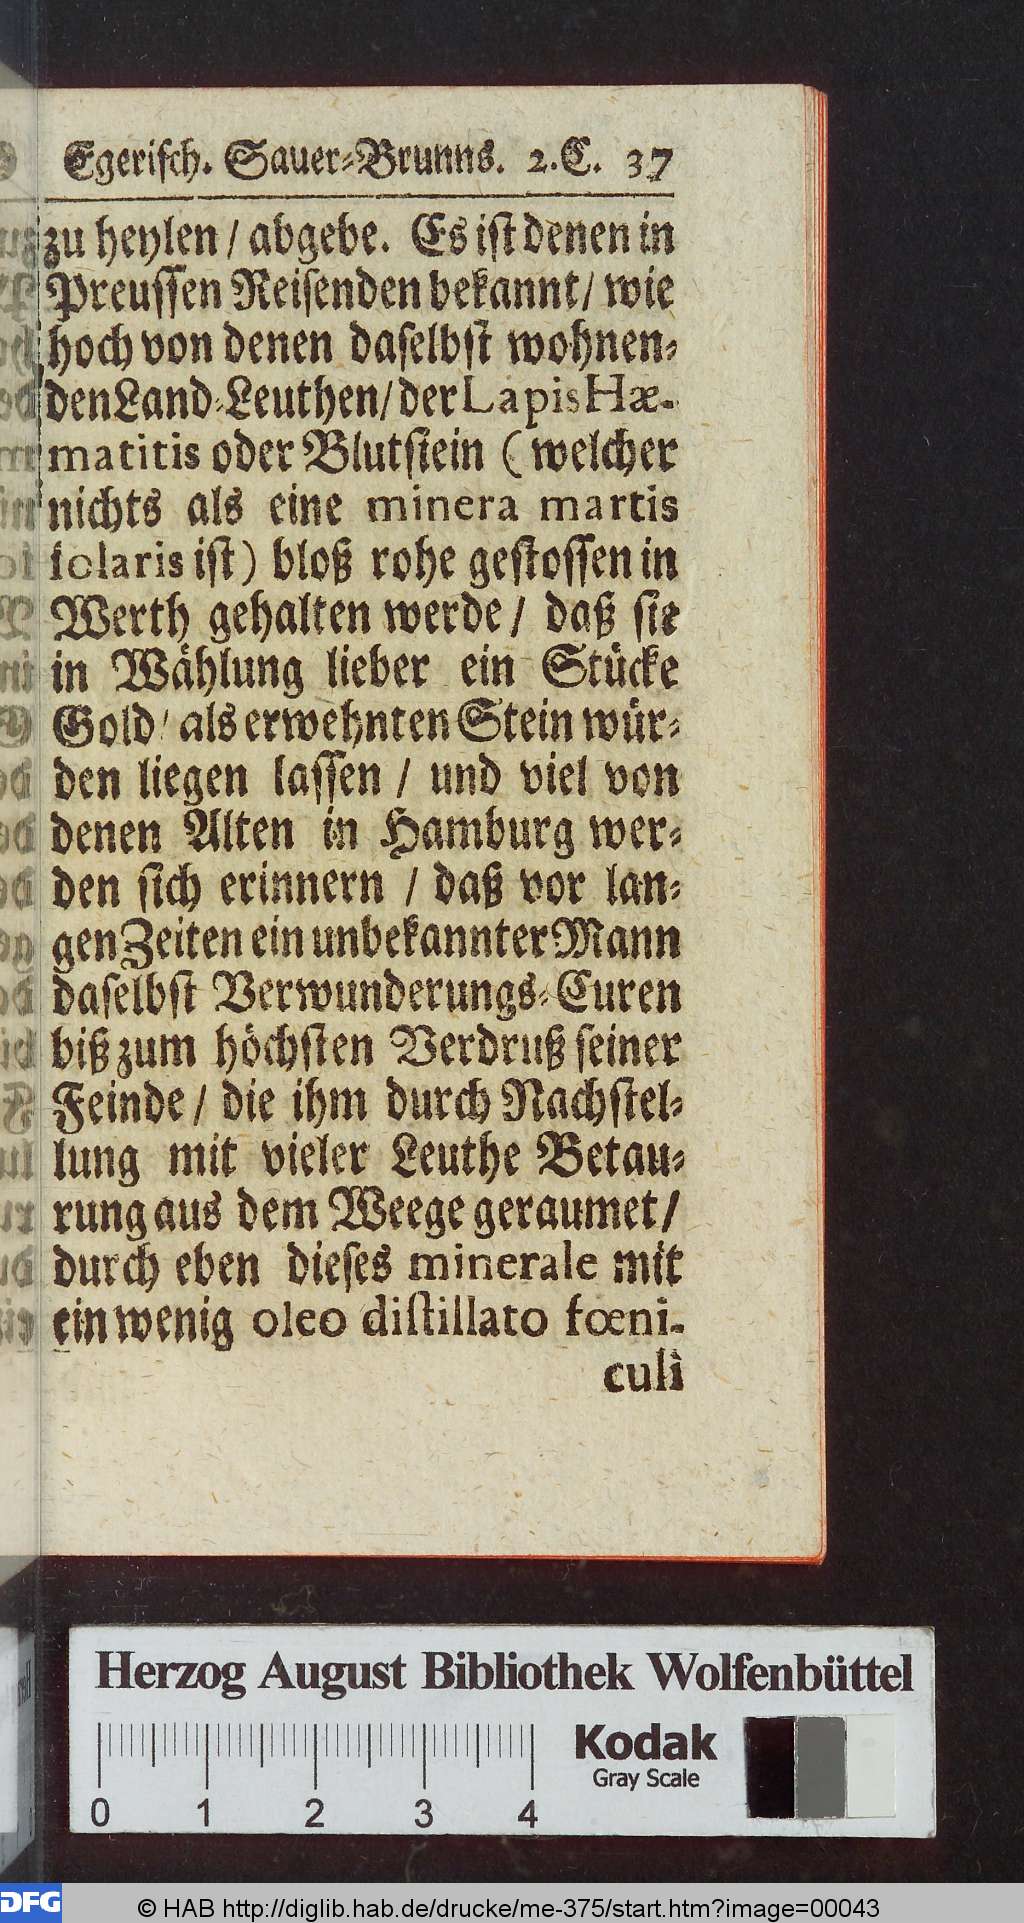 Egerisch. Sauer-Brunns. 2. C. 37
zu heylen / abgebe. Es ist denen in
Preussen Reisenden bekannt / wie
hoch von denen daselbst wohnen-
den Land-Leuthen / der Lapis Hæ-
matitis oder Blutstein ( welcher
nichts als eine minera martis
solaris ist ) bloß rohe gestossen in
Werth gehalten werde / daß sie
in Wählung lieber ein Stücke
Gold / als erwehnten Stein wür-
den liegen lassen / und viel von
denen Alten in Hamburg wer-
den sich erinnern / daß vor lan-
gen Zeiten ein unbekannter Mann
daselbst Verwunderungs-Curen
biß zum höchsten Verdruß seiner
Feinde / die ihm durch Nachstel-
lung mit vieler Leuthe Betau-
rung aus dem Weege geraumet /
durch eben dieses minerale mit
ein wenig oleo distillato fœni-
culi
Herzog August Bibliothek Wolfenbüttel
Kodak
Gray Scale
0 1 2 3 4
DFG
© HAB http://diglib.hab.de/drucke/me-375/start.htm?image=00043